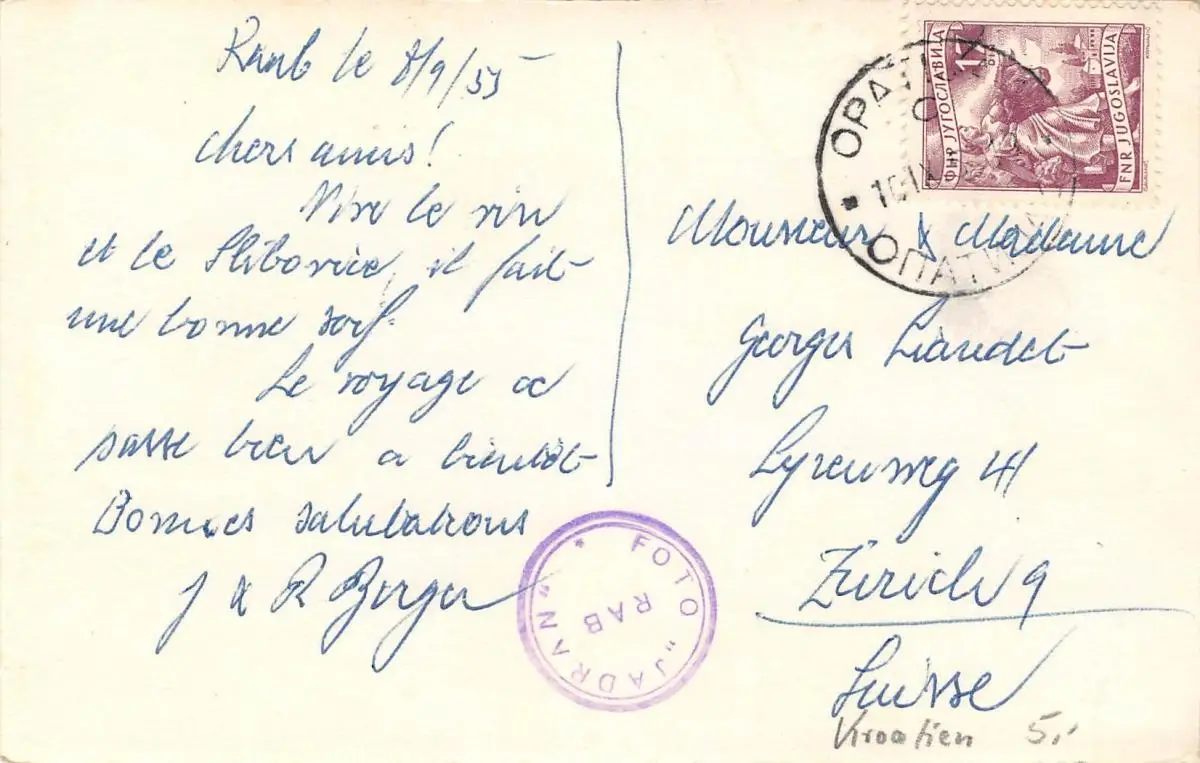 Raab le 8/9/53
chers amis!
Vive le vin
et le Slibovice, il fait
une bonne soif.
Le voyage a
passe bien a bientôt
Bonnes salutations
J & R Berger
FOTO "JADRAN"
RAB
ФНР ЈУГОСЛАВИЈА
17
FNR JUGOSLAVIJA
OPATIJA
ОПАТИЈА
Monsieur & Madame
Georges Liaudet
Lyrenweg 41
Zürich 9
Suisse
Kroatien 5,-